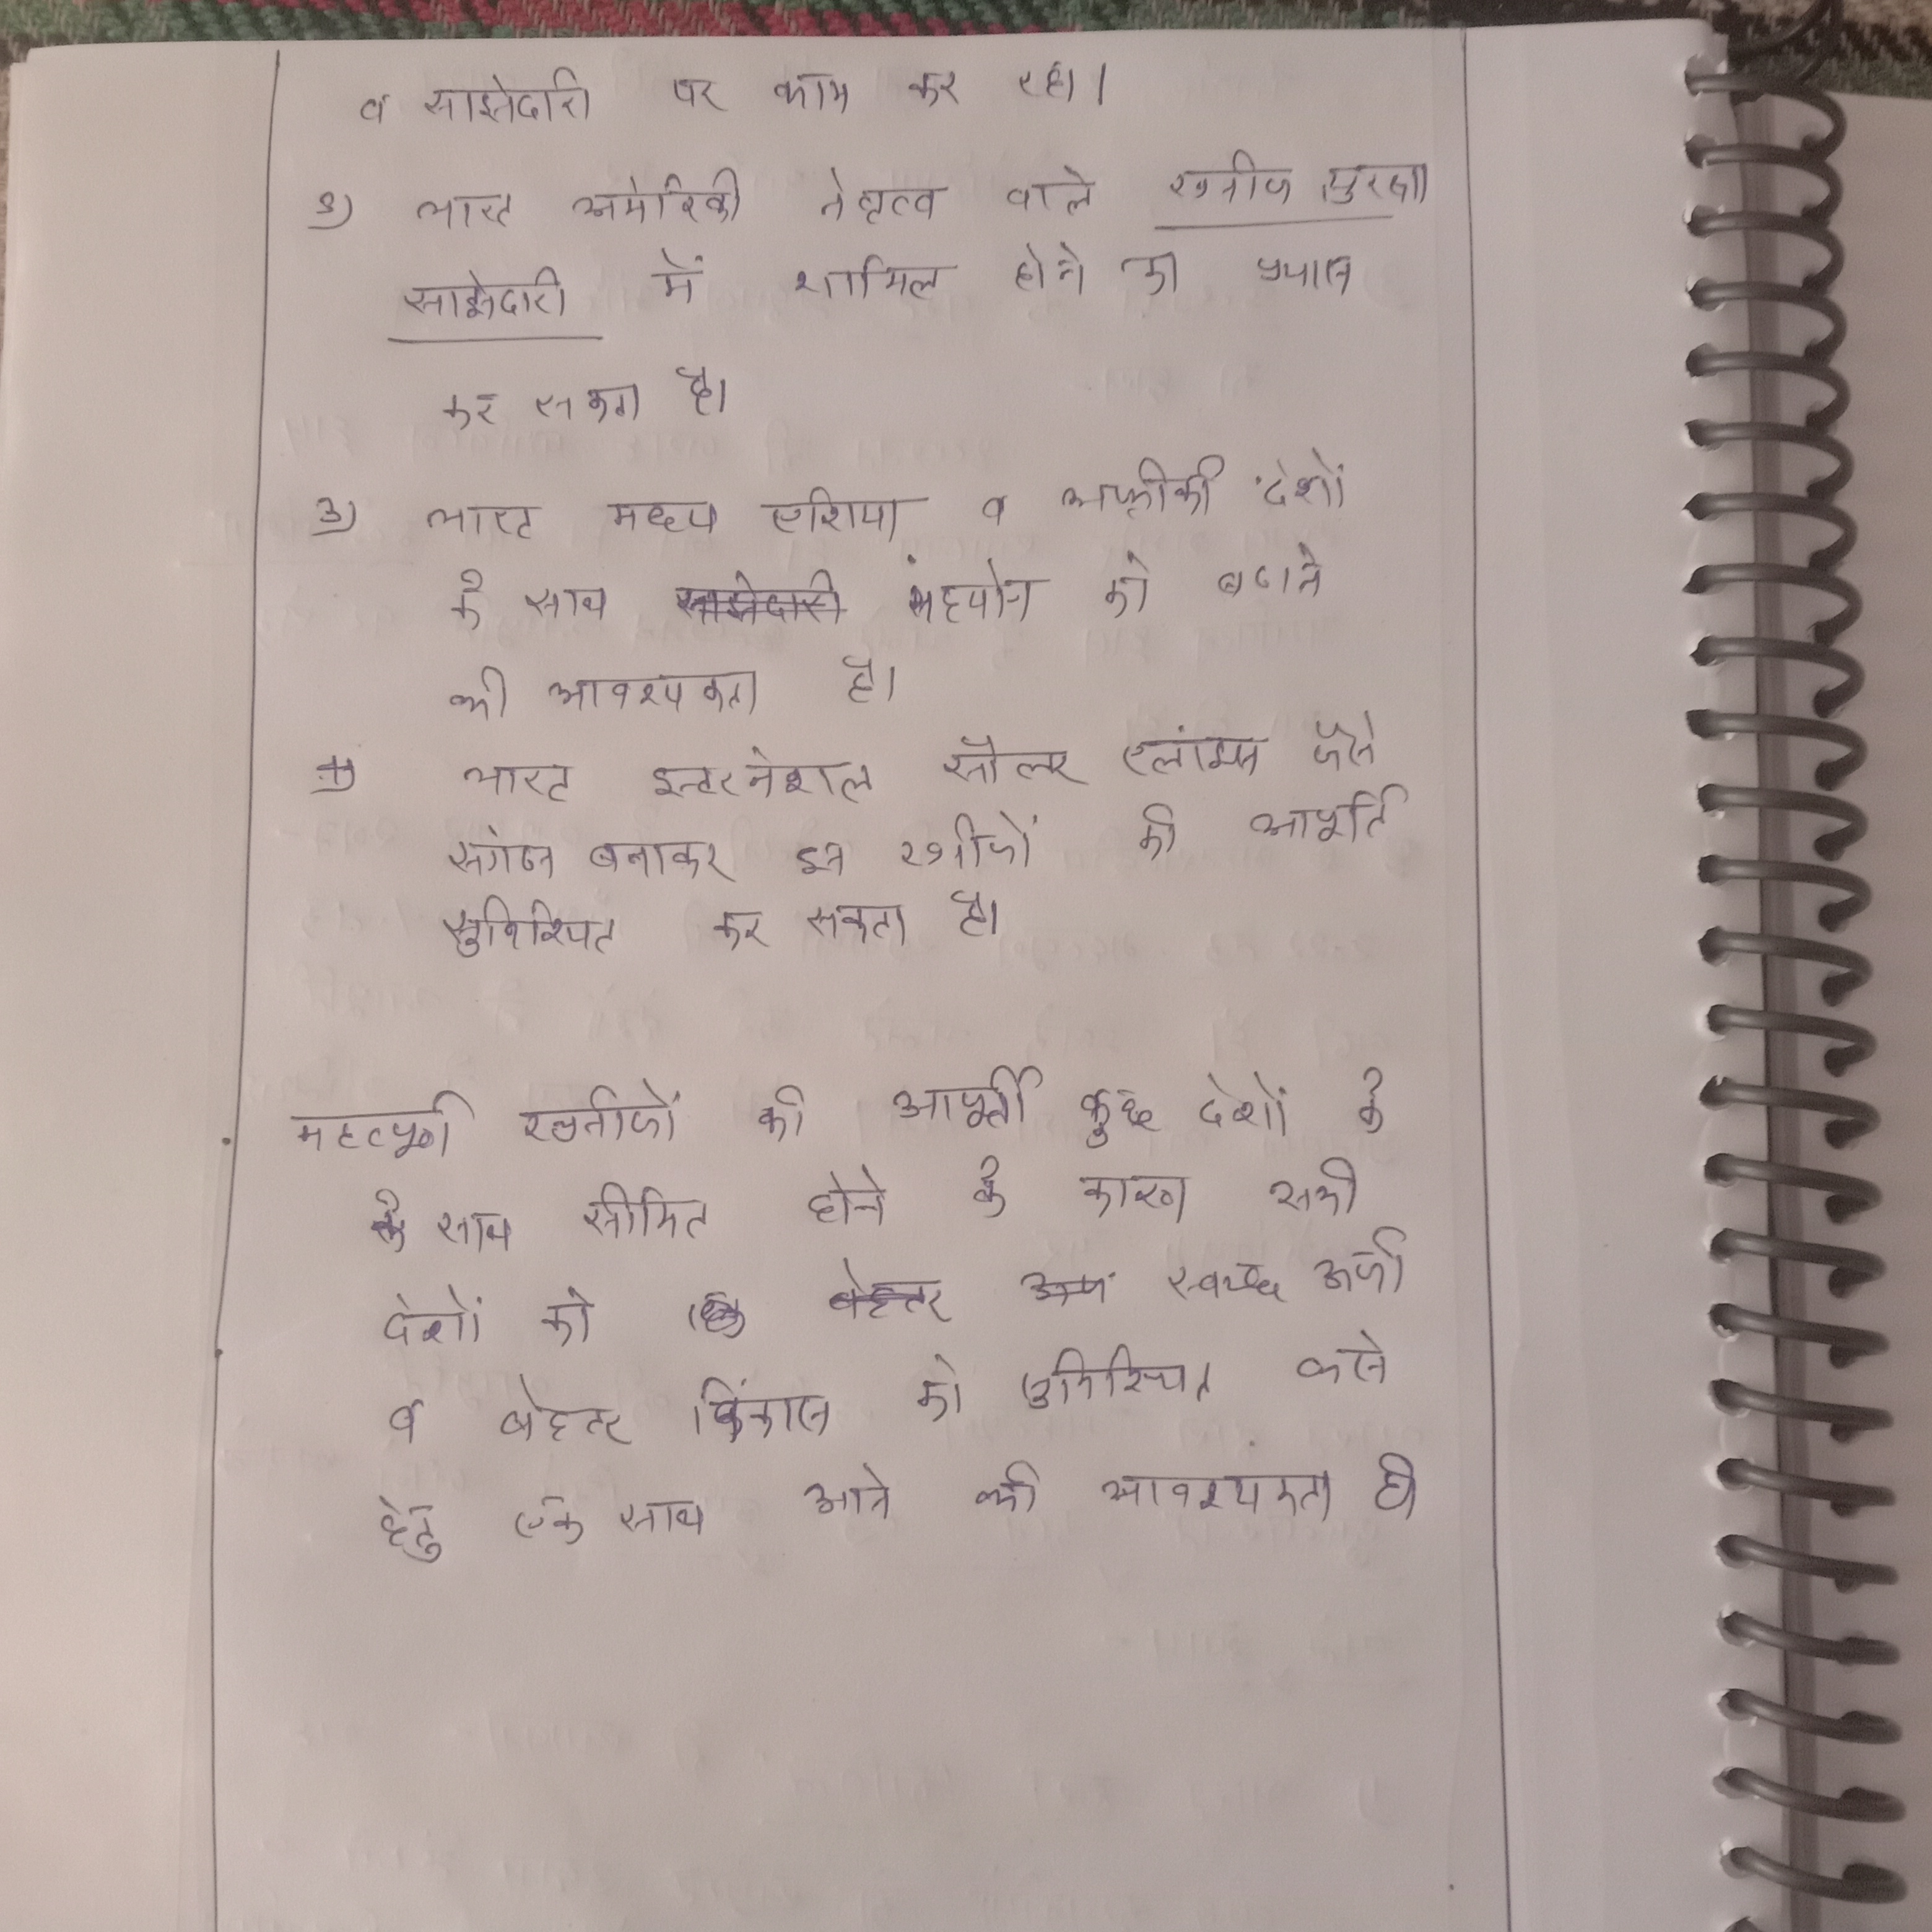 व साझेदारी पर काम कर रहा।
2) भारत अमेरिकी नेतृत्व वाले खनीज सुरक्षा
साझेदारी में शामिल होने का प्रयास
कर सकता है।
3) भारत मध्य एशिया व अफ्रीकी देशों
के साथ साझेदारी सहयोग को बढाने
की आवश्यकता है।
4) भारत इन्टरनेशल सौलर एलांयस जैसे
संगठन बनाकर इन खनीजों की आपूर्ति
सुनिश्चित कर सकता है।
महत्वपूर्ण खनीजों की आपूर्ती कुछ देशों के
के साथ सीमित होने के कारण सभी
देशों को बेहतर स्वच्छ ऊर्जा
व बेहतर विकास को सुनिश्चित करने
हेतु एक साथ आने की आवश्यकता है।